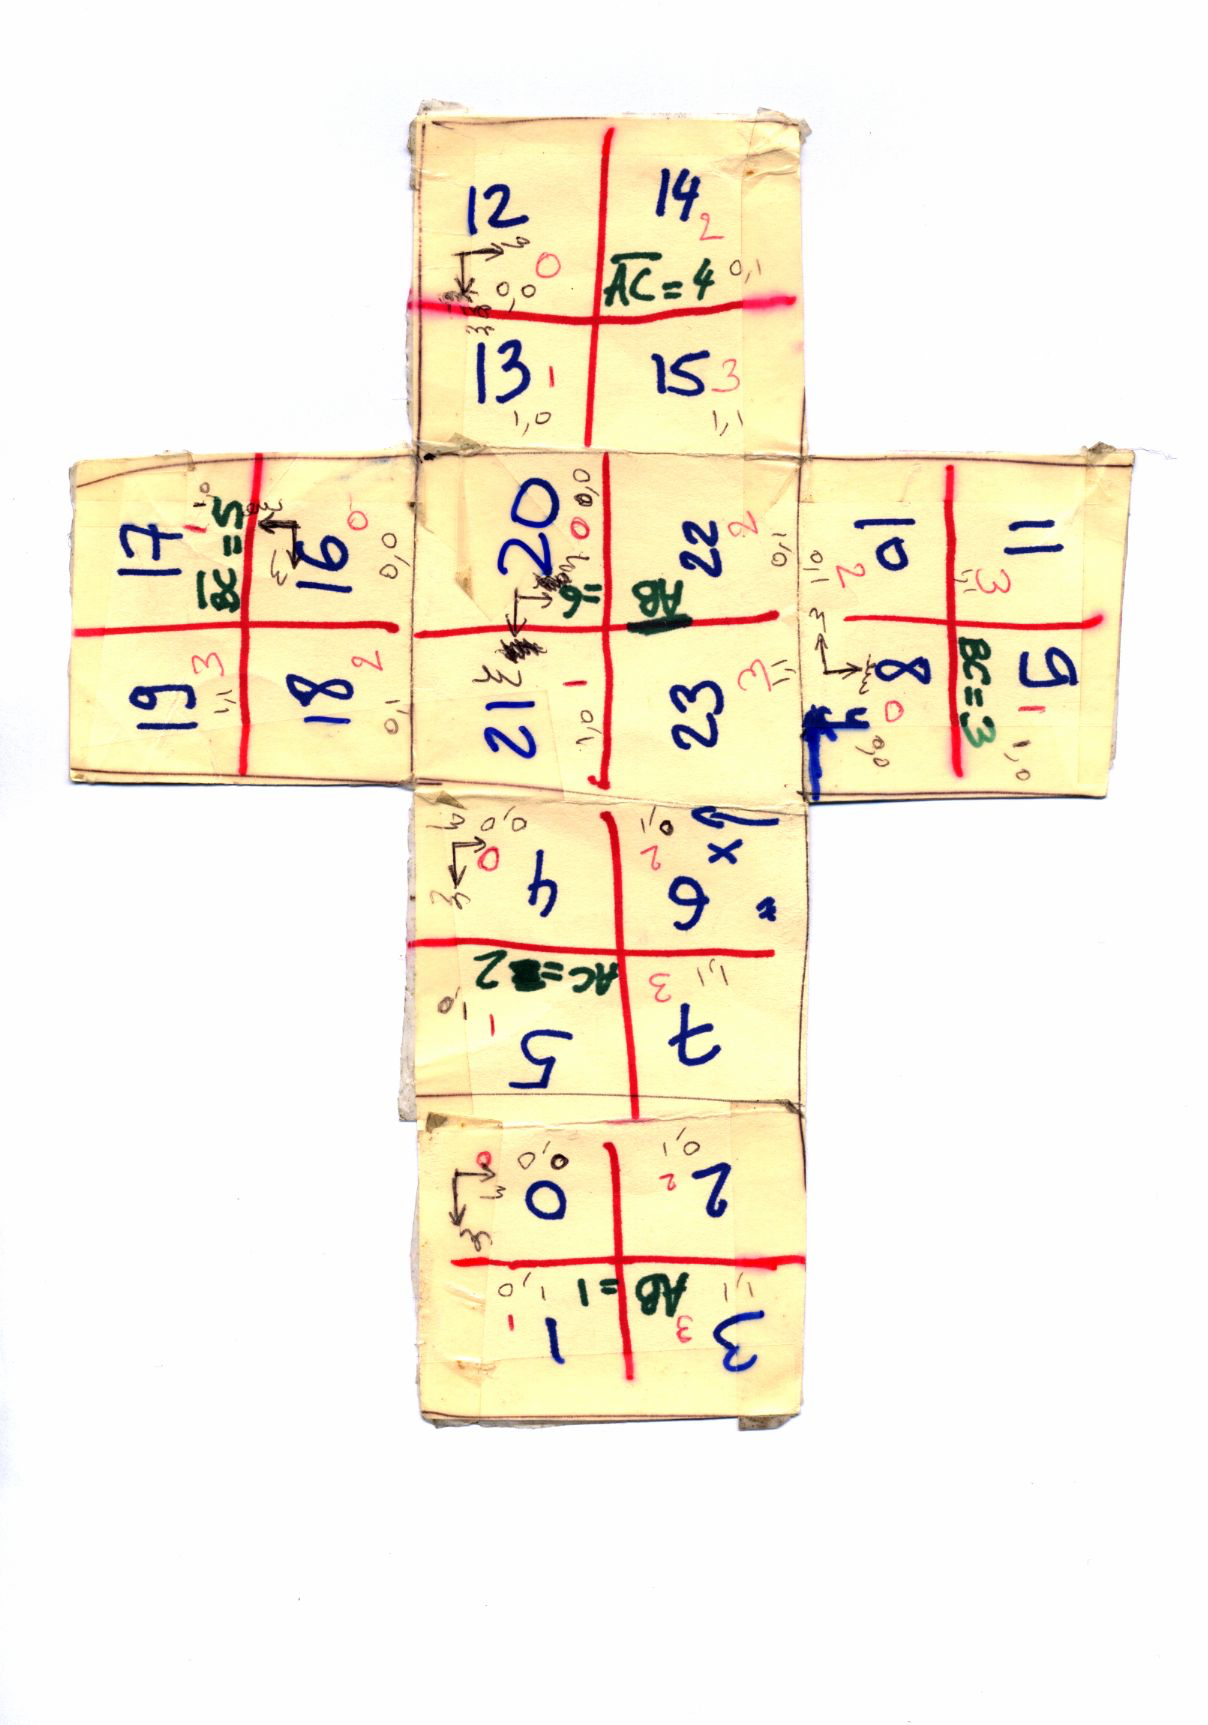 12 14
2
0 0,1
0,0 AC = 4
13 1 15 3
1,0 1,1
17 1 0,1
BC = 5
16 0 0,0
19 3 1,1
18 2 1,0
20 0 0,0
22 2 1,0
AB = 6
21 1 0,1
23 3 1,1
10 2 0,1
11 3 1,1
8 0 0,0
9 1 1,0
BC = 3
y
4 0 0,0
6 2 0,1
x
AC = 2
5 1 1,0
7 3 1,1
0 0 0,0
2 2 0,1
AB = 1
1 1 1,0
3 3 1,1